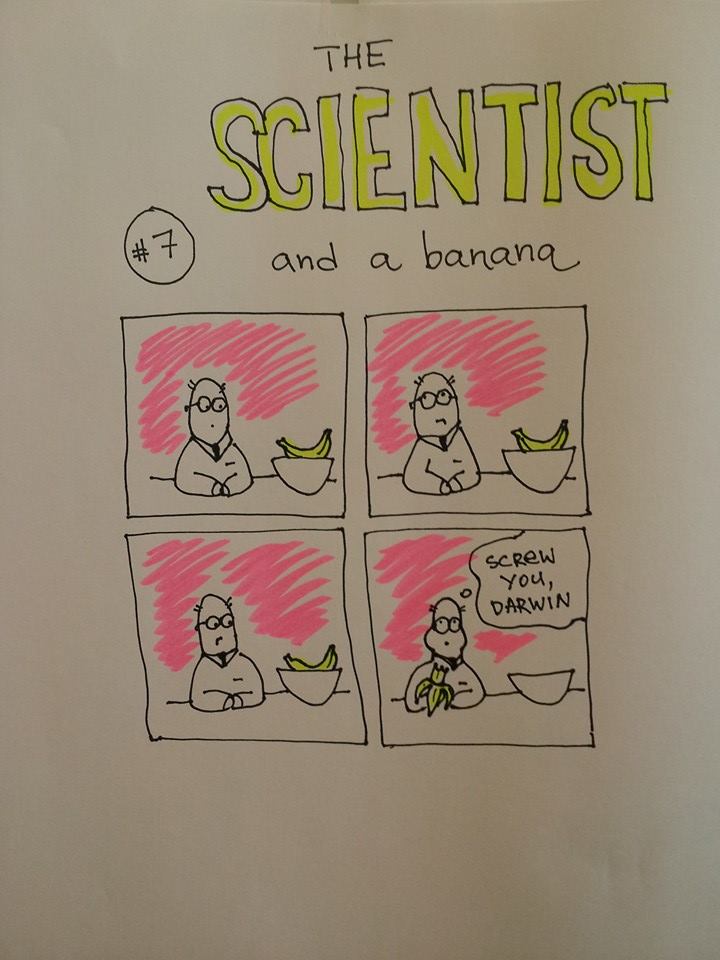 THE
SCIENTIST
#7
and a banana
SCREW
YOU,
DARWIN